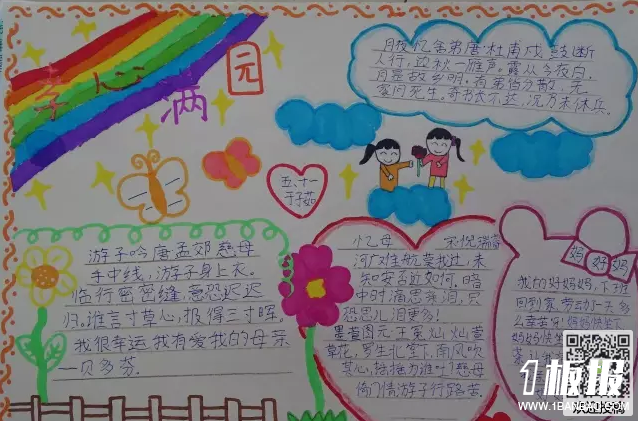 孝心满
元
月夜忆舍弟唐·杜甫戍鼓断
人行,边秋一雁声。露从今夜白,
月是故乡明。有弟皆分散,无
家问死生。寄书长不达,况乃未休兵。
五、十一
于子茹
游子吟唐孟郊慈母
手中线,游子身上衣。
临行密密缝,意恐迟迟
归。谁言寸草心,报得三寸晖
我很幸运,我有爱我的母亲
—贝多芬
忆母
宋·倪瑞
河广难航莫我过,未
知安否近如何。暗
中时滴思亲泪,只
恐思儿泪更多!
墨萱图元·王冕灿灿萱
草花,罗生北堂下,南风吹
其心,摇摇为谁吐?慈母
倚门情游子行路苦.
妈好妈
我的好妈妈,下班
回到家,劳动了一天多
么辛苦呀!妈妈快坐下
妈妈快坐
1板报
WWW.1BANBAO.COM
欢迎投稿